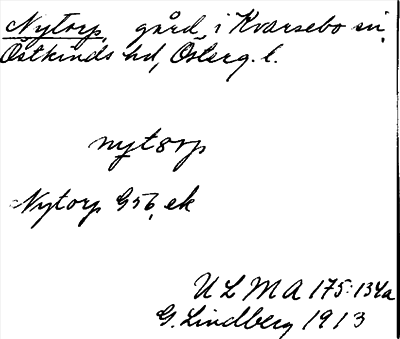 Nytorp, gård, i Kvarsebo sn,
Östkinds hd, Österg. l.
nyt8rp
Nytorp G56, ek
ULMA 175:134a
G. Lindberg 1913